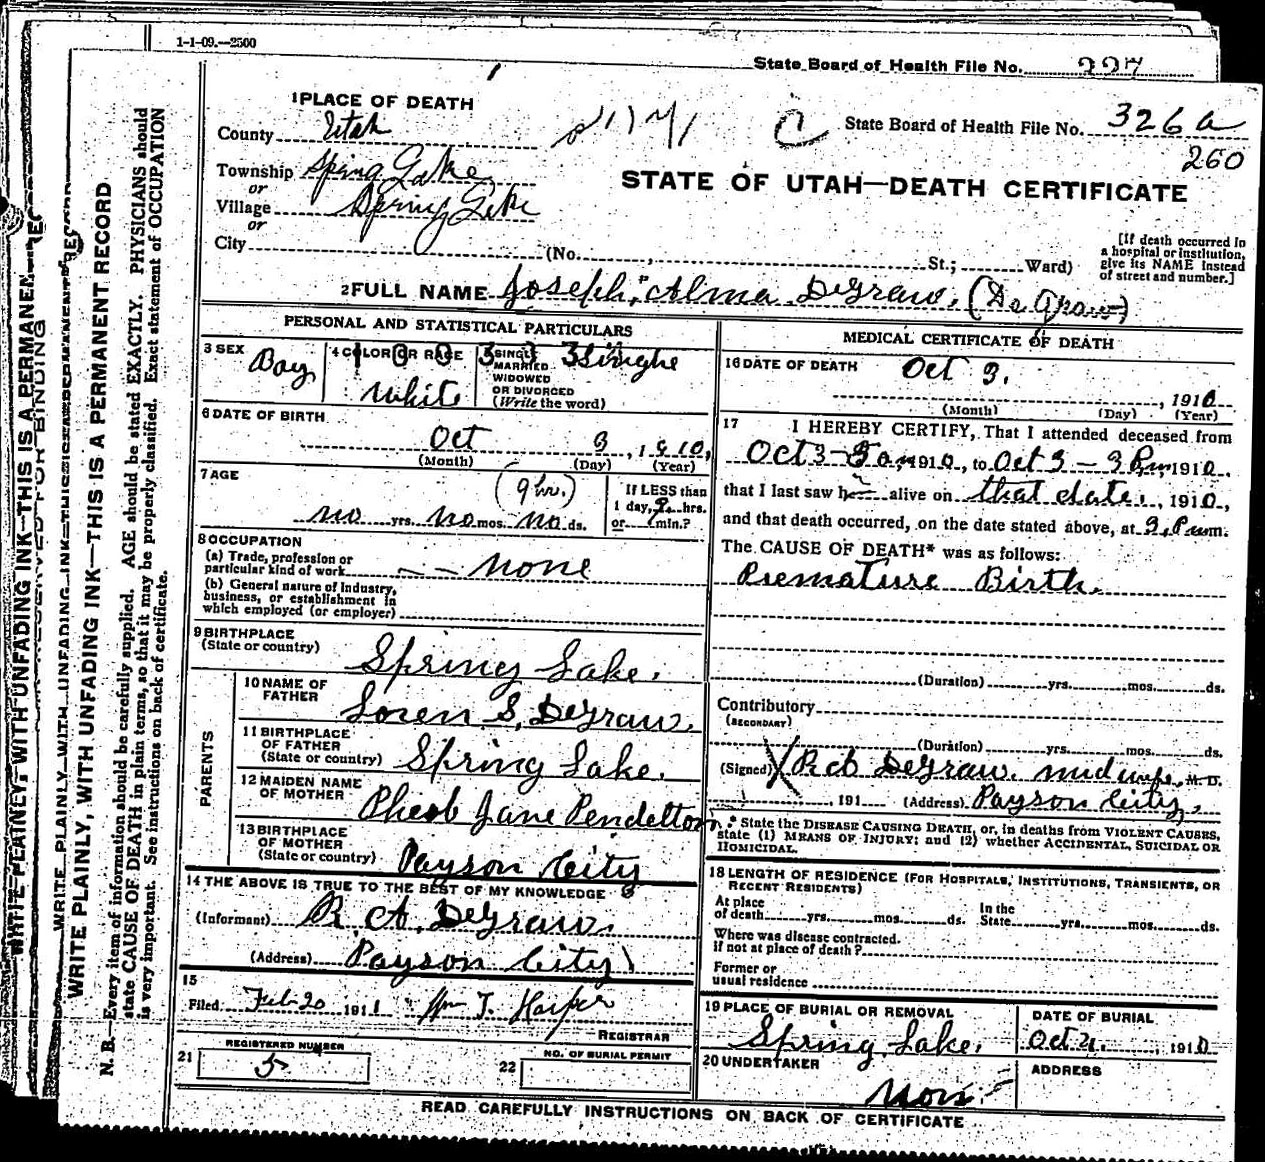 1-1-09.--2500
State Board of Health File No. 327
State Board of Health File No. 326a
260
1 PLACE OF DEATH
County Utah
Township Spring Lake
or
Village Spring Lake
or
City (No. , St.; Ward)
C
STATE OF UTAH—DEATH CERTIFICATE
[If death occurred in
a hospital or institution,
give its NAME instead
of street and number.]
2 FULL NAME Joseph Alma DeGraw. (De Graw)
PERSONAL AND STATISTICAL PARTICULARS
3 SEX Boy
4 COLOR OR RACE White
5 SINGLE
MARRIED
WIDOWED
OR DIVORCED
(Write the word)
Single
6 DATE OF BIRTH
Oct 3, 1910,
(Month) (Day) (Year)
7 AGE (9 hr.)
no yrs. no mos. no ds.
If LESS than
1 day, 9 hrs.
or min.?
8 OCCUPATION
(a) Trade, profession or
particular kind of work none
(b) General nature of Industry,
business, or establishment in
which employed (or employer)
9 BIRTHPLACE
(State or country) Spring Lake.
PARENTS
10 NAME OF
FATHER Loren S. DeGraw.
11 BIRTHPLACE
OF FATHER
(State or country) Spring Lake.
12 MAIDEN NAME
OF MOTHER Pheob Jane Pendelton
13 BIRTHPLACE
OF MOTHER
(State or country) Payson City
14 THE ABOVE IS TRUE TO THE BEST OF MY KNOWLEDGE
(Informant) R. A. DeGraw.
(Address) Payson City
15
Filed Feb 20 1911 Wm T. Harper
REGISTRAR
21 REGISTERED NUMBER
5
22 NO. OF BURIAL PERMIT
MEDICAL CERTIFICATE OF DEATH
16 DATE OF DEATH Oct 3.
, 1910
(Month) (Day) (Year)
17 I HEREBY CERTIFY, That I attended deceased from
Oct 3 - 5 am 1910, to Oct 3 - 3 Pm 1910.
that I last saw h alive on that date, 1910,
and that death occurred, on the date stated above, at 3. P m.
The CAUSE OF DEATH* was as follows:
Premature Birth.
(Duration) yrs. mos. ds.
Contributory
(SECONDARY)
(Duration) yrs. mos. ds.
(Signed) R A DeGraw. midwife, M. D.
, 191 (Address) Payson City.
* State the DISEASE CAUSING DEATH, or, in deaths from VIOLENT CAUSES,
state (1) MEANS OF INJURY; and (2) whether ACCIDENTAL, SUICIDAL OR
HOMICIDAL.
18 LENGTH OF RESIDENCE (FOR HOSPITALS, INSTITUTIONS, TRANSIENTS, OR
RECENT RESIDENTS)
At place
of death yrs. mos. ds. In the
State yrs. mos. ds.
Where was disease contracted.
if not at place of death?
Former or
usual residence
19 PLACE OF BURIAL OR REMOVAL
Spring Lake.
DATE OF BURIAL
Oct 4. , 1910
20 UNDERTAKER
Non
ADDRESS
READ CAREFULLY INSTRUCTIONS ON BACK OF CERTIFICATE
WRITE PLAINLY, WITH UNFADING INK—THIS IS A PERMANENT RECORD
N. B.—Every item of information should be carefully supplied. AGE should be stated EXACTLY. PHYSICIANS should
state CAUSE OF DEATH in plain terms, so that it may be properly classified. Exact statement of OCCUPATION
is very important. See instructions on back of certificate.